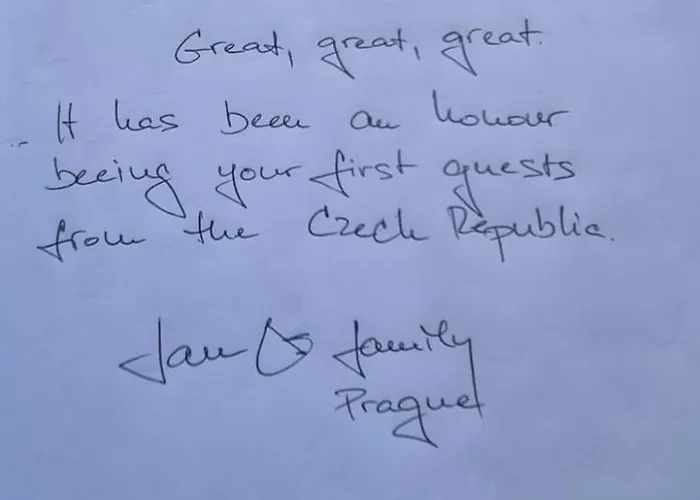 Great, great, great.
It has been an honour
beeing your first guests
from the Czech Republic.
Jan & family
Prague